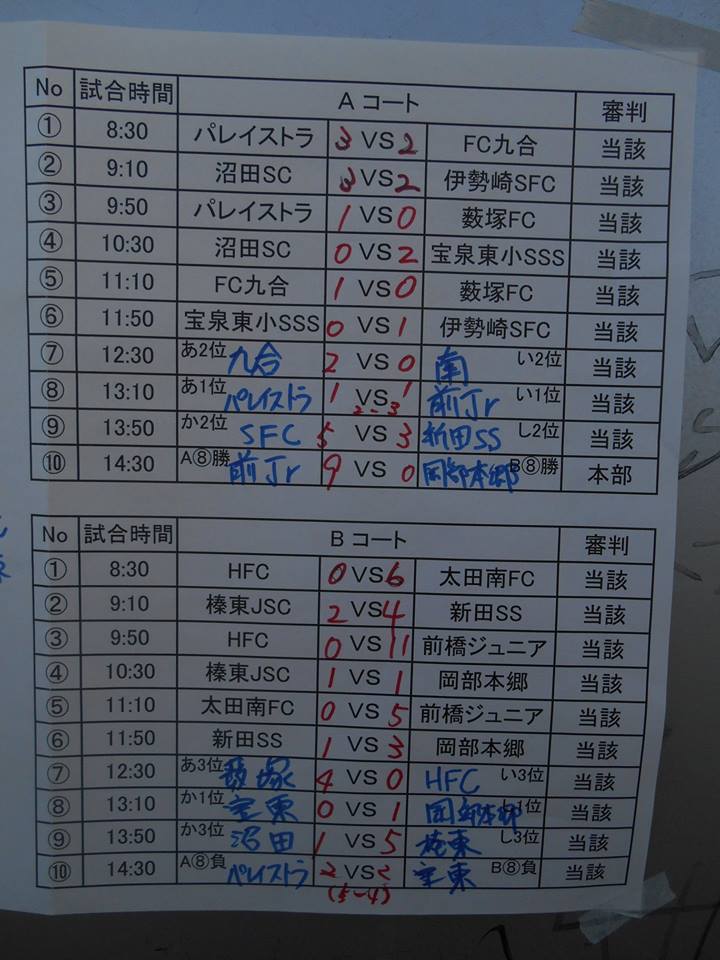 No 試合時間 Aコート 審判
① 8:30 パレイストラ 3 VS 2 FC九合 当該
② 9:10 沼田SC 3 VS 2 伊勢崎SFC 当該
③ 9:50 パレイストラ 1 VS 0 薮塚FC 当該
④ 10:30 沼田SC 0 VS 2 宝泉東小SSS 当該
⑤ 11:10 FC九合 1 VS 0 薮塚FC 当該
⑥ 11:50 宝泉東小SSS 0 VS 1 伊勢崎SFC 当該
⑦ 12:30 あ2位 九合 2 VS 0 南 い2位 当該
⑧ 13:10 あ1位 パレイストラ 1 VS 1 前Jr い1位 当該
2-3
⑨ 13:50 か2位 SFC 5 VS 3 新田SS し2位 当該
⑩ 14:30 A⑧勝 前Jr 9 VS 0 岡部本郷 B⑧勝 本部
No 試合時間 Bコート 審判
① 8:30 HFC 0 VS 6 太田南FC 当該
② 9:10 榛東JSC 2 VS 4 新田SS 当該
③ 9:50 HFC 0 VS 11 前橋ジュニア 当該
④ 10:30 榛東JSC 1 VS 1 岡部本郷 当該
⑤ 11:10 太田南FC 0 VS 5 前橋ジュニア 当該
⑥ 11:50 新田SS 1 VS 3 岡部本郷 当該
⑦ 12:30 あ3位 薮塚 4 VS 0 HFC い3位 当該
⑧ 13:10 か1位 宝東 0 VS 1 岡部本郷 1位 当該
⑨ 13:50 か3位 沼田 1 VS 5 榛東 し3位 当該
⑩ 14:30 A⑧負 パレイストラ 2 VS 2 宝東 B⑧負 当該
(5-4)